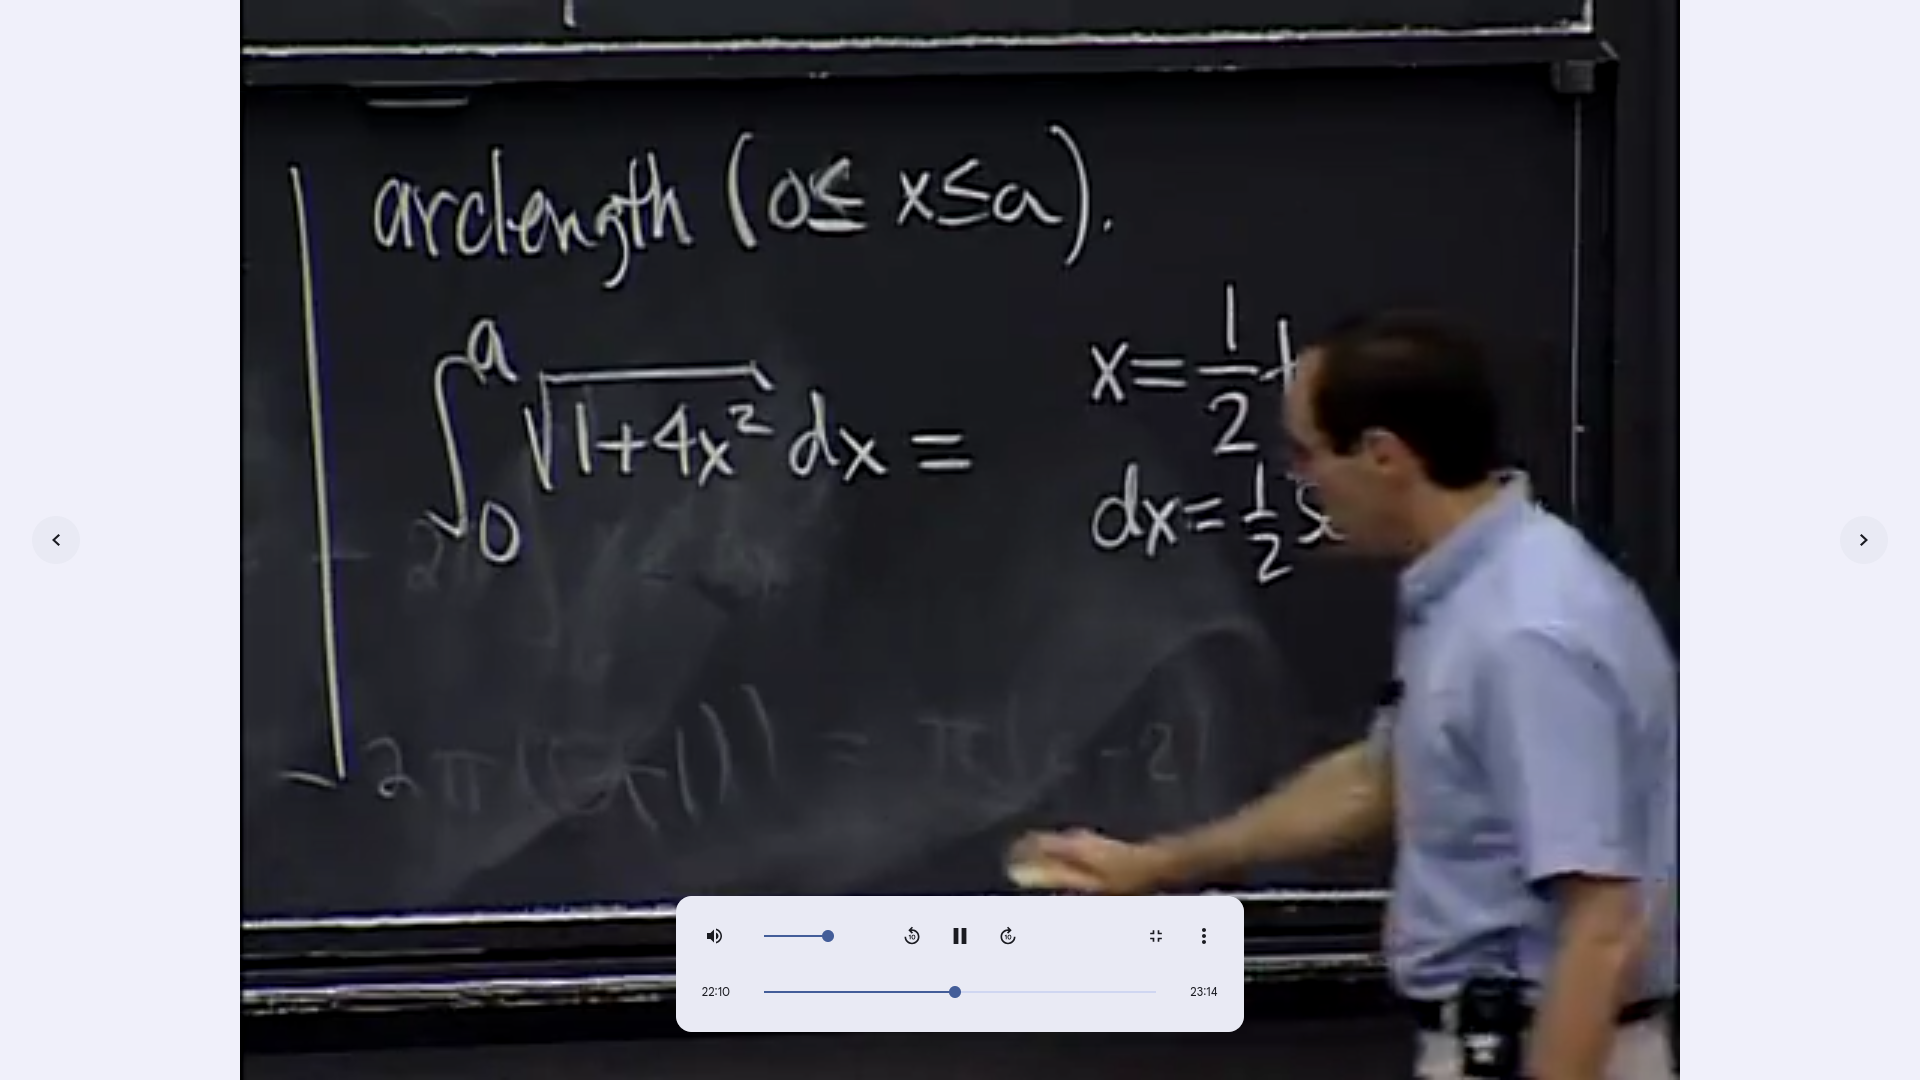 arclength (0 ≤ x ≤ a).
∫₀ᵃ √(1+4x²) dx =
x = 1/2 t
dx = 1/2 s
2π = π( -2)
10 10
22:10 23:14